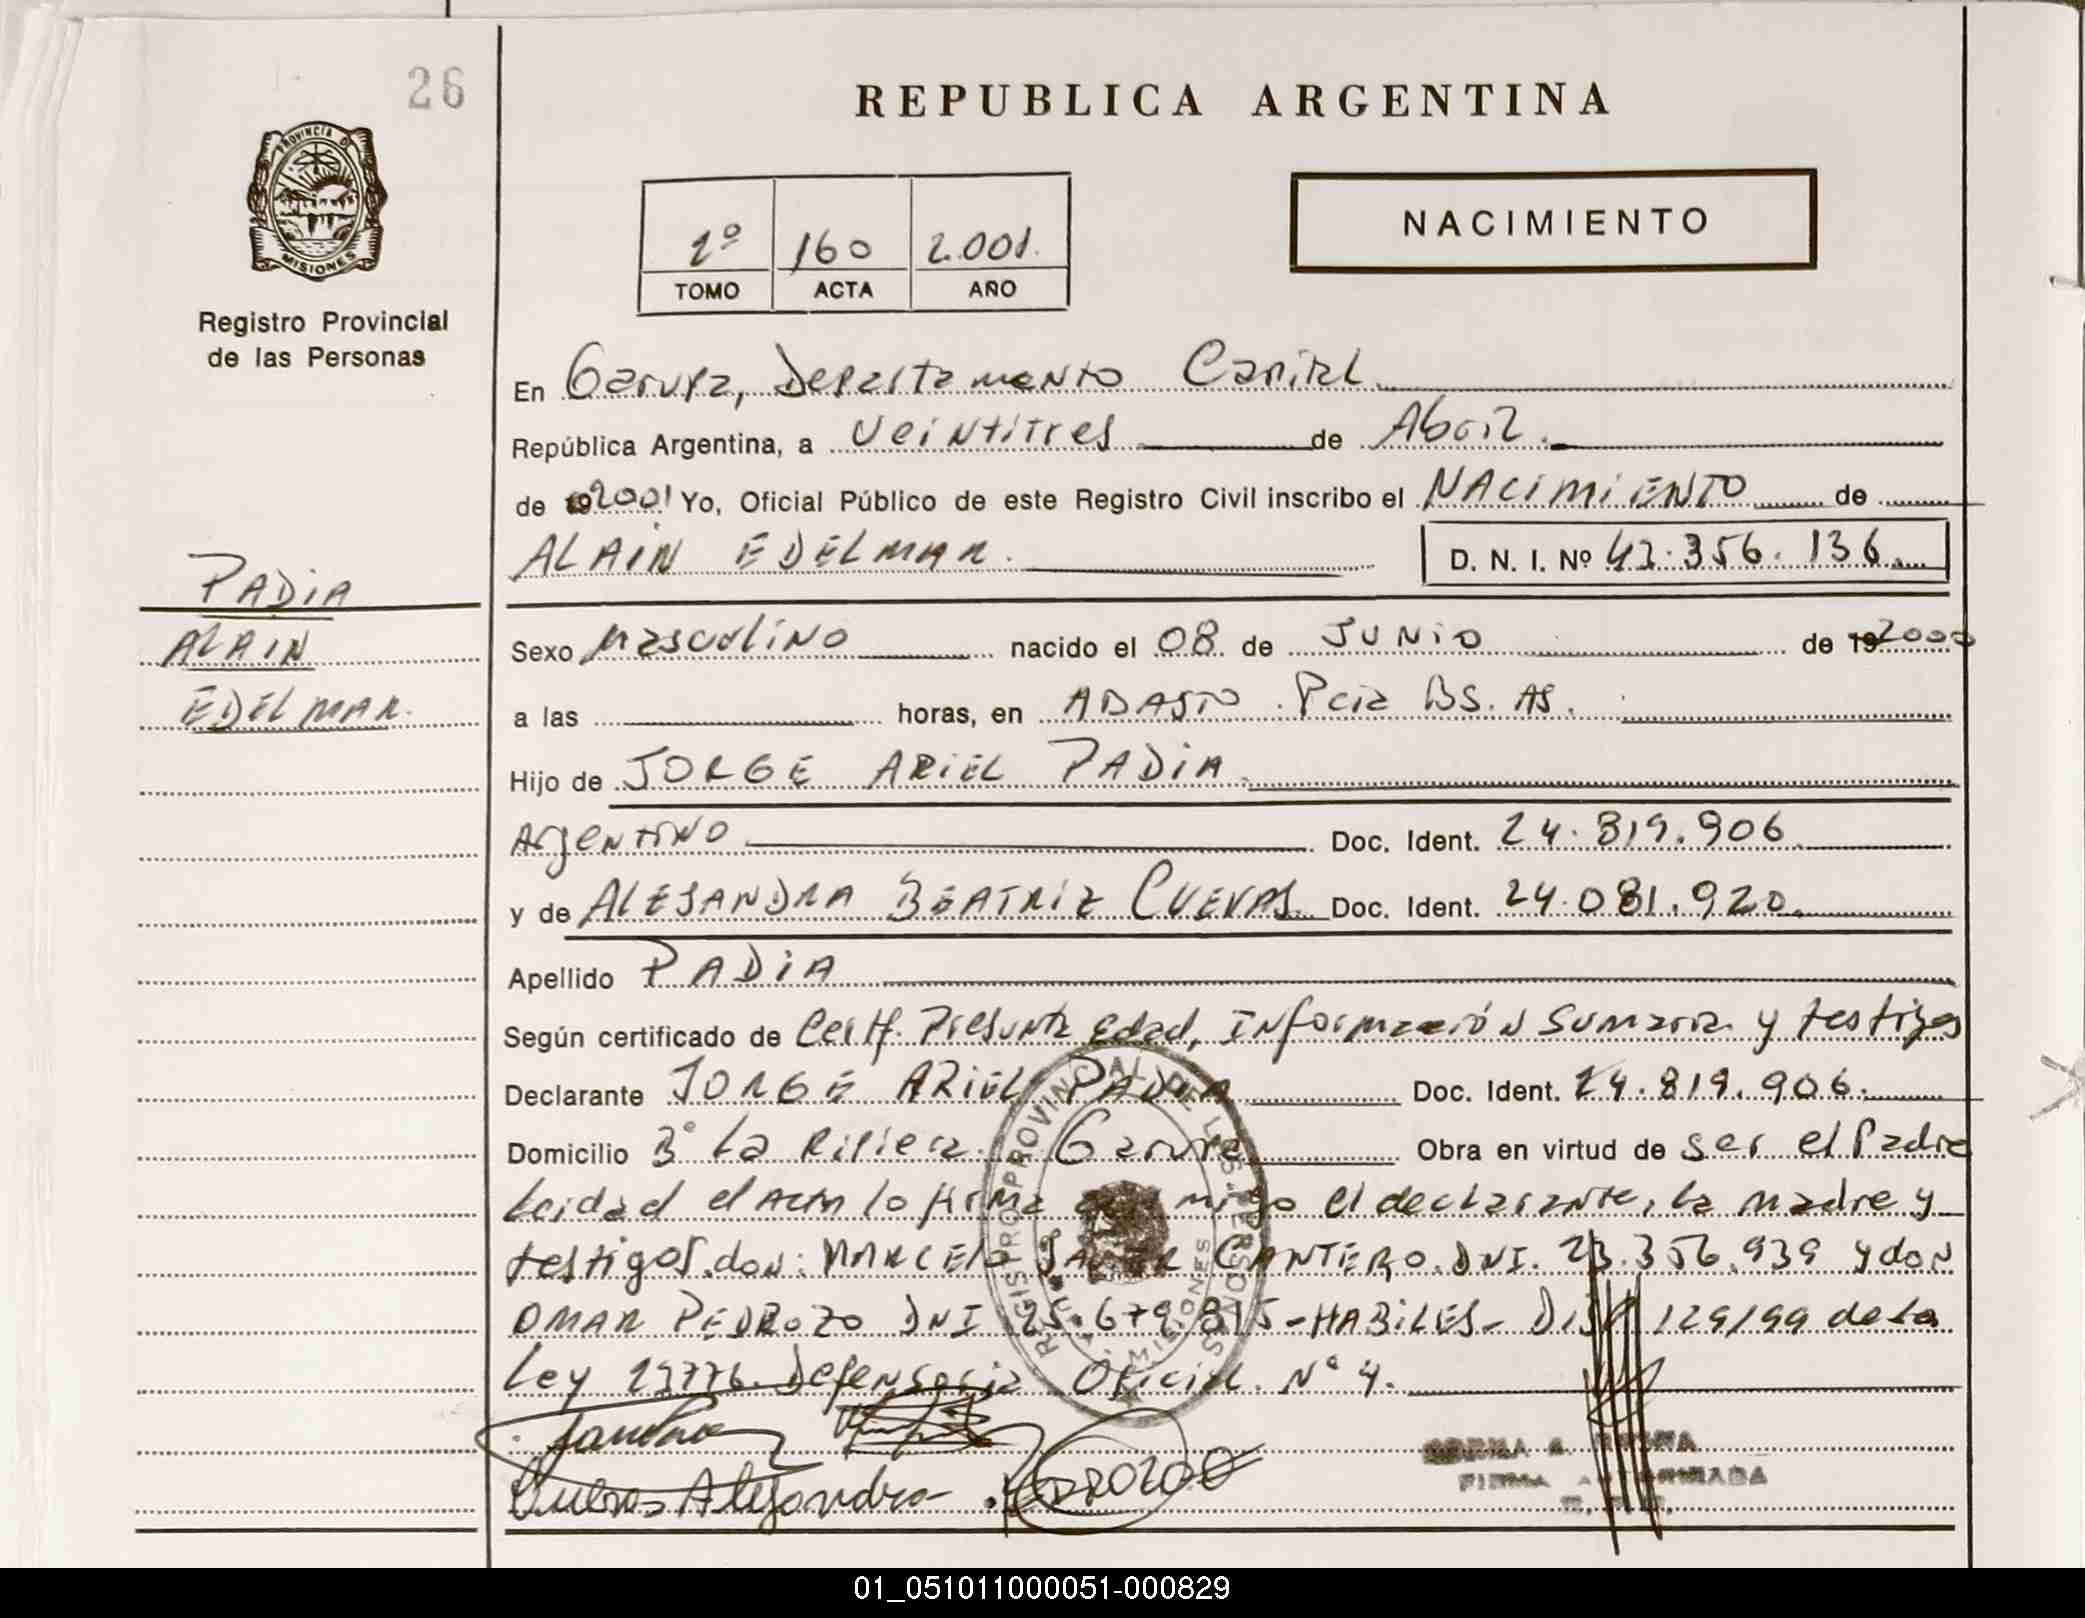 26
REPUBLICA ARGENTINA
PROVINCIA DE
MISIONES
Registro Provincial
de las Personas
1º 160 2.001.
TOMO ACTA AÑO
NACIMIENTO
En Garupa, Departamento Capital
República Argentina, a veintitres de Abril
de 192001 Yo, Oficial Público de este Registro Civil inscribo el NACIMIENTO de
ALAIN EDELMAR. D. N. I. Nº 42.356.136
PADIA
ALAIN
EDELMAR.
Sexo Masculino nacido el 08 de JUNIO de 192000
a las horas, en ABASTO Pcia BS. AS.
Hijo de JORGE ARIEL PADIA
Argentino Doc. Ident. 24.819.906
y de ALEJANDRA BEATRIZ CUEVAS Doc. Ident. 24.081.920
Apellido PADIA
Según certificado de Certf. Presunta Edad, Información Sumaria y testigos
Declarante JORGE ARIEL PADIA Doc. Ident. 24.819.906.
Domicilio Bº La Rivera. Garupa Obra en virtud de ser el Padre
Leidad el Acta lo firma con migo el declarante, la madre y
testigos don: MARCELO JAVIER CANTERO DNI. 23.356.939 y don
OMAR PEDROZO DNI 25.679.815-HABILES- DISP 129/99 de la
Ley 23776. Defensoria Oficial Nº 4.
Cuevas Alejandra PEDROZO
FIRMA AUTORIZADA
REGISTRO PROVINCIAL DE LAS PERSONAS
MISIONES
01_051011000051-000829